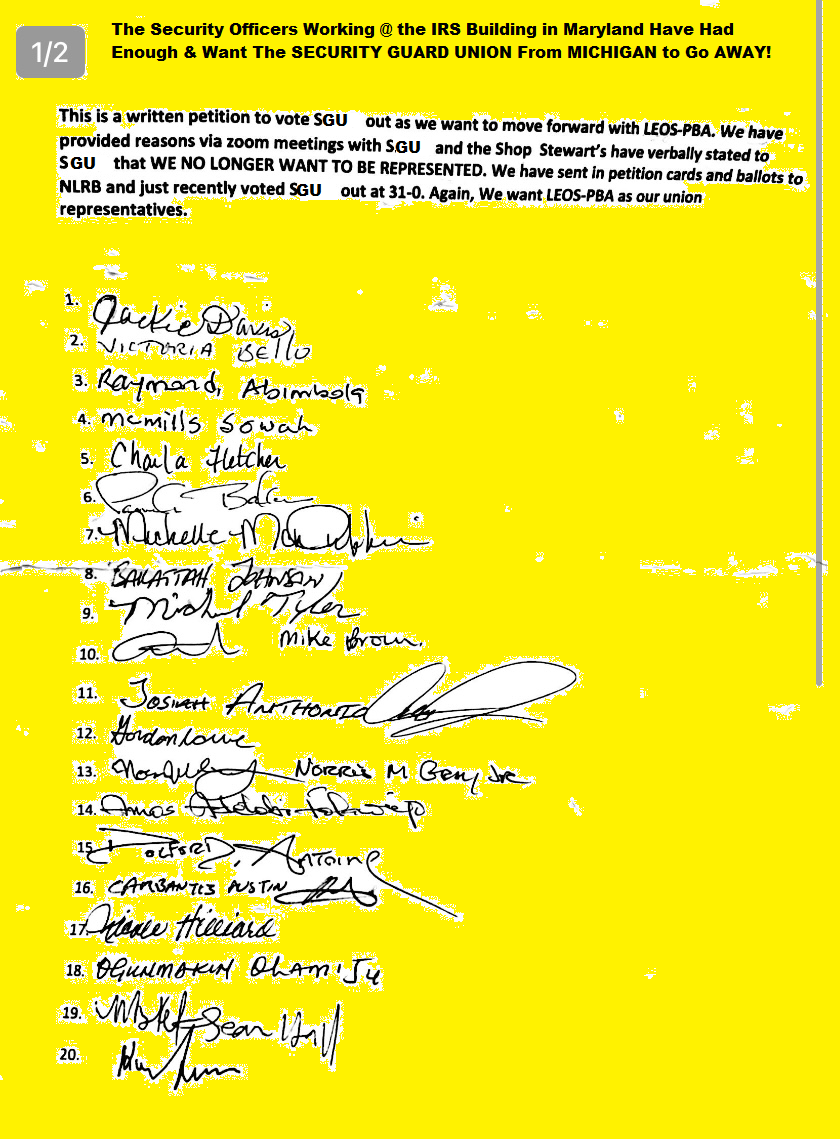 1/2
The Security Officers Working @ the IRS Building in Maryland Have Had
Enough & Want The SECURITY GUARD UNION From MICHIGAN to Go AWAY!
This is a written petition to vote SGU out as we want to move forward with LEOS-PBA. We have
provided reasons via zoom meetings with SGU and the Shop Stewart's have verbally stated to
SGU that WE NO LONGER WANT TO BE REPRESENTED. We have sent in petition cards and ballots to
NLRB and just recently voted SGU out at 31-0. Again, We want LEOS-PBA as our union
representatives.
1. Jackie Davis
2. VICTORIA BELLO
3. Raymond, Abimbola
4. mcmills Sowah
5. Charla Fletcher
6.
7. Michelle
8. BAKATTAH JOHNSON
9. Michael Tyler
10. Mike Brown.
11. JOSIAH ANTHONIO
12. Gordon Lowe
13. NORRIS M Gray Jr
14. Amos
15. ANTOINE
16. CARBANTES AUSTIN
17. Nicole Hilliard
18. OGUNMAKIN OLAMIJU
19. Sean Hall
20.